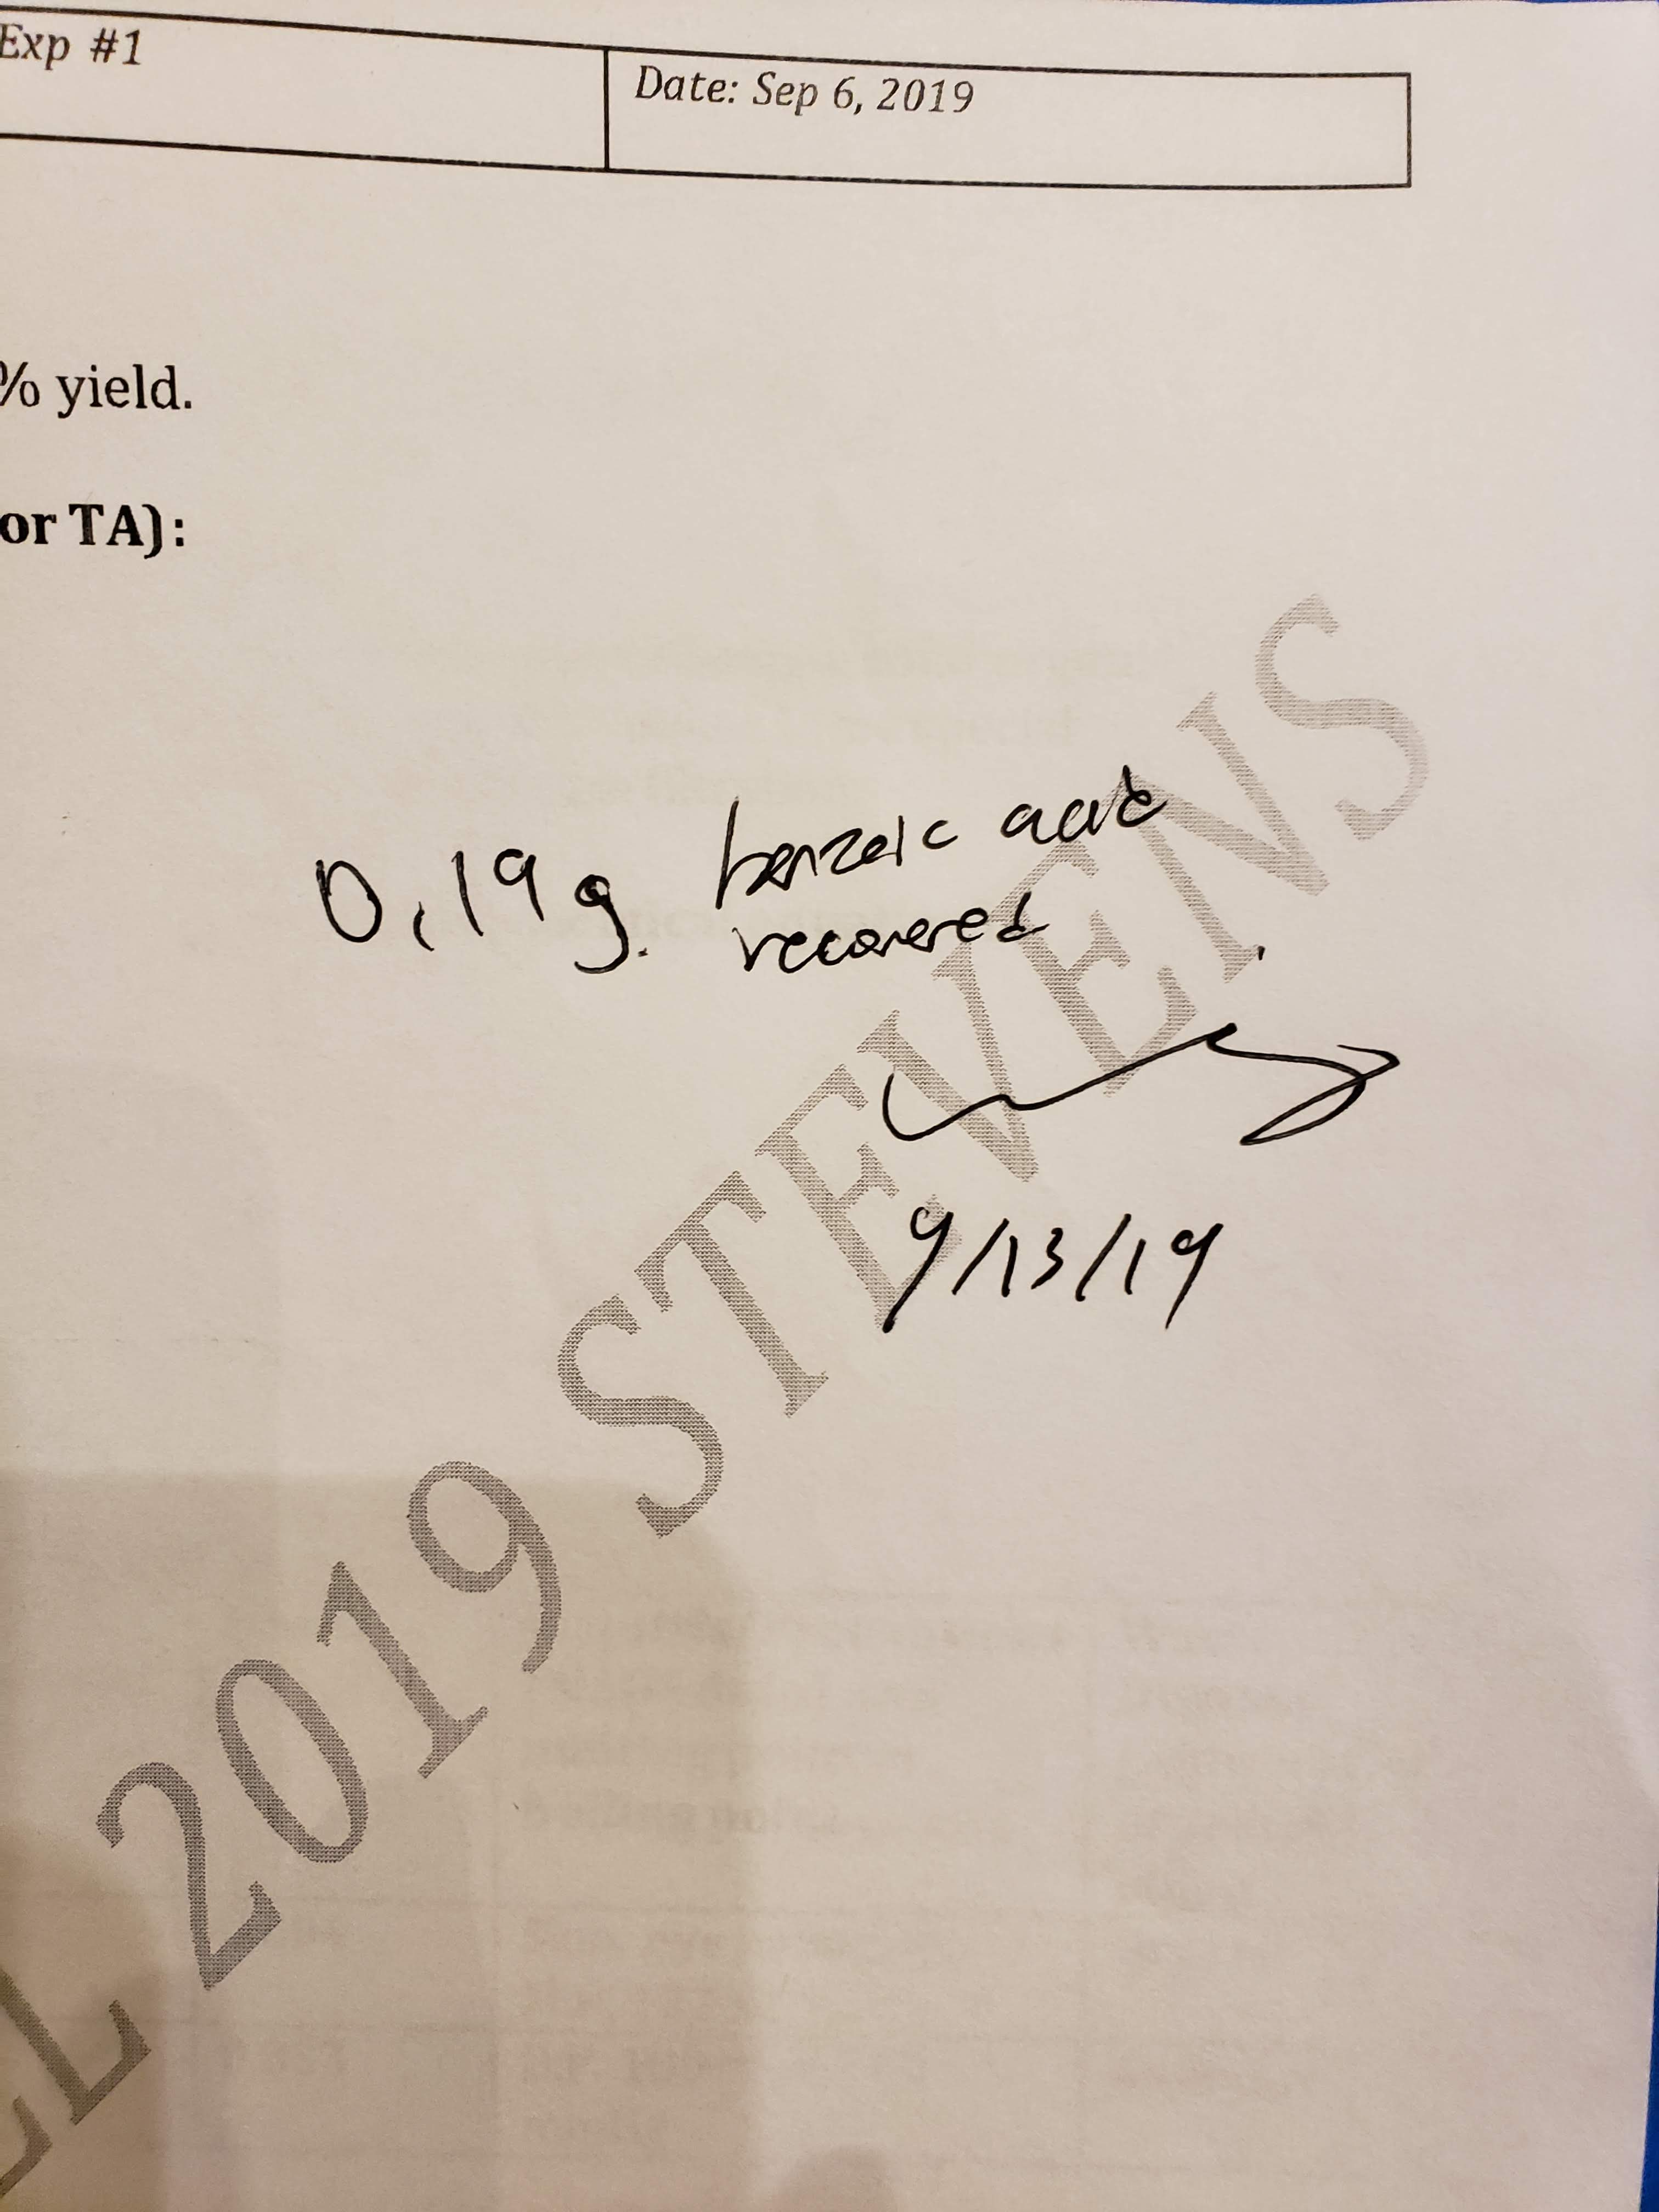 Exp #1
Date: Sep 6, 2019
% yield.
or TA):
0.19 g. benzoic acid
recovered
9/13/19
LL 2019 STEVENS